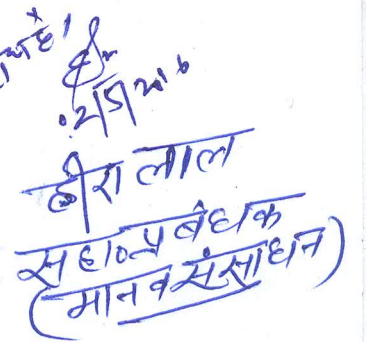 हीरा लाल
सहा०प्रबंधक
(मानव संसाधन)